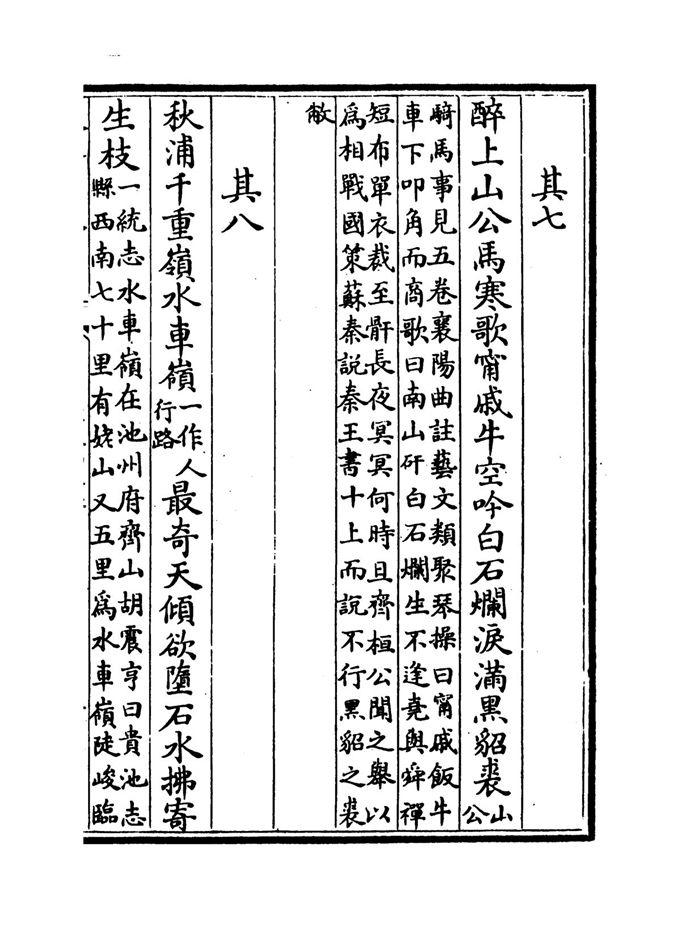 其七
醉上山公馬寒歌甯戚牛空吟白石爛淚滿黑貂裘山公
騎馬事見五卷襄陽曲註藝文類聚琴操曰甯戚飯牛
車下叩角而商歌曰南山矸白石爛生不逢堯與舜禪
短布單衣裁至骭長夜冥冥何時旦齊桓公聞之舉以
爲相戰國策蘇秦説秦王書十上而説不行黑貂之裘
敝
其八
秋浦千重嶺水車嶺一作人行路最奇天傾欲墮石水拂寄
生枝一統志水車嶺在池州府齊山胡震亨曰貴池志
縣西南七十里有姥山又五里爲水車嶺陡峻臨